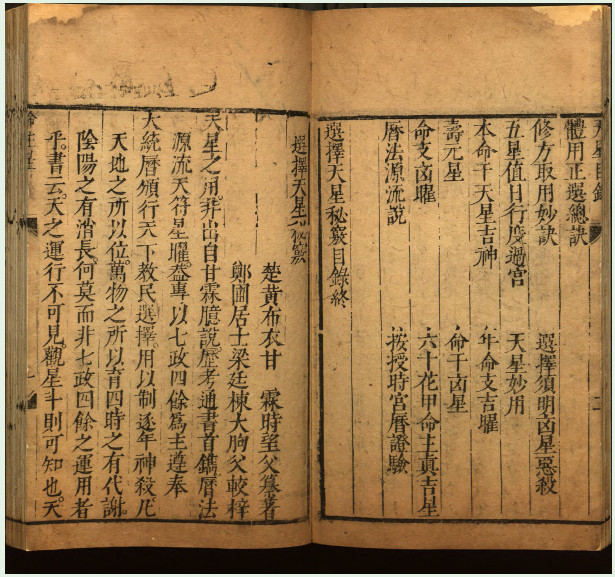 天星目錄
體用正選總訣
修方取用妙訣　選擇須明凶星惡殺
五星值日行度過宮　天星妙用
本命干天星吉神　年命支吉曜
壽元星　命干凶星
命支凶曜　六十花甲命主真吉星
曆法源流說　按授時宮曆證驗
選擇天星秘竅目錄終
選擇天星秘竅
楚黃布衣甘　霖時望父纂著
鄭圃居士梁廷棟大胸父較梓
天星之用。非出自甘霖臆說。歷考通書首鐫曆法
源流天符星曜。葢專以七政四餘爲主遵奉
大統曆頒行天下教民選擇。用以制逐年神殺凡
天地之所以位。萬物之所以育。四時之有代謝。
陰陽之有消長。何莫而非七政四餘之運用者
乎。書云。天之運行不可見。觀星斗則可知也。天